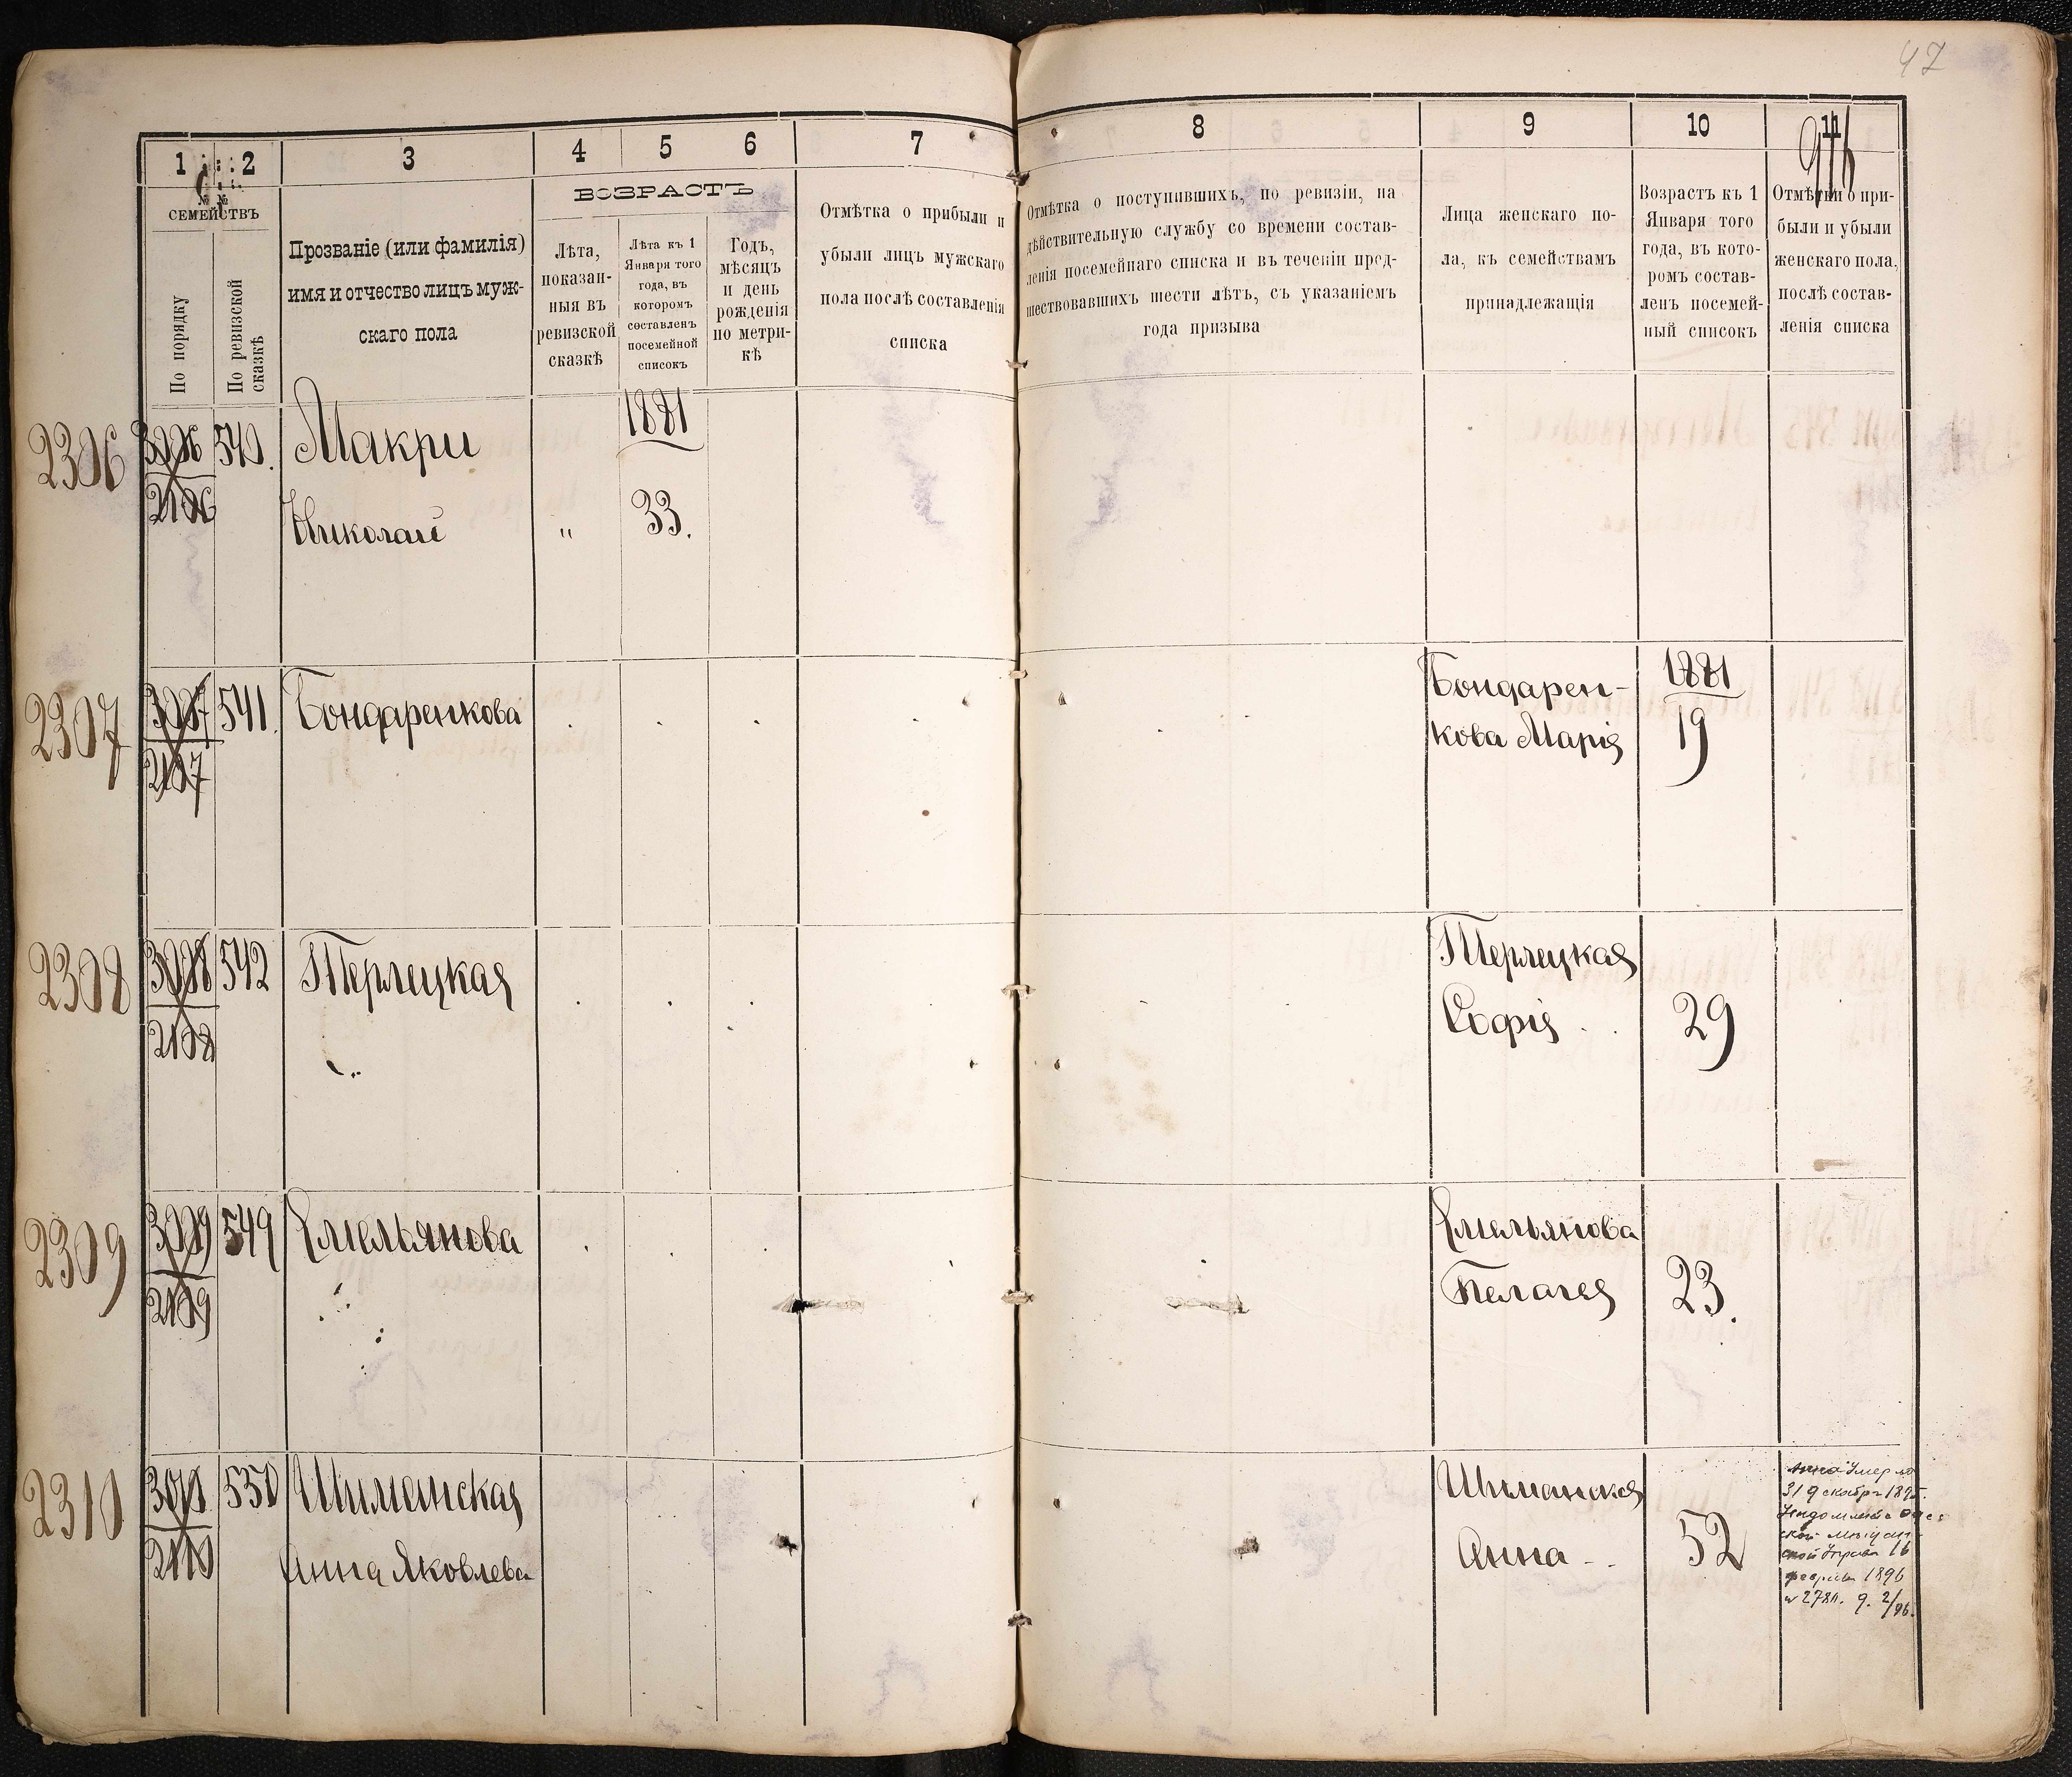 47
1 2 3 4 5 6 7 8 9 10 11
№ №
СЕМЕЙСТВЪ
По порядку
По ревизской сказкѣ
Прозваніе (или фамилія)
имя и отчество лицъ муж-
скаго пола
ВОЗРАСТЪ
Лѣта,
показан-
ныя въ
ревизской
сказкѣ
Лѣта къ 1
Января того
года, въ
которомъ
составленъ
посемейной
списокъ
Годъ,
мѣсяцъ
и день
рожденія
по метри-
кѣ
Отмѣтка о прибыли и
убыли лицъ мужскаго
пола послѣ составленія
списка
Отмѣтка о поступившихъ, по ревизіи, на
дѣйствительную службу со времени состав-
ленія посемейнаго списка и въ теченіи пред-
шествовавшихъ шести лѣтъ, съ указаніемъ
года призыва
Лица женскаго по-
ла, къ семействамъ
принадлежащія
Возрастъ къ 1
Января того
года, въ кото-
ромъ состав-
ленъ посемей-
ный списокъ
Отмѣтки о при-
были и убыли
женскаго пола,
послѣ состав-
ленія списка
2306 3006 540. Макри 1881
2106 Николай " 33.
2307 3007 541. Бондаренкова Бондарен- 1881
2107 кова Марія 19
2308 3008 542 Терлецкая Терлецкая
2108 Софія 29
2309 3009 549 Емельянова Емельянова
2109 Пелагея 23.
2310 3010 550 Шиманская Шиманская
2110 Анна Яковлева Анна 52
Анна умерла
31 декабр 1895.
16
февраля 1896